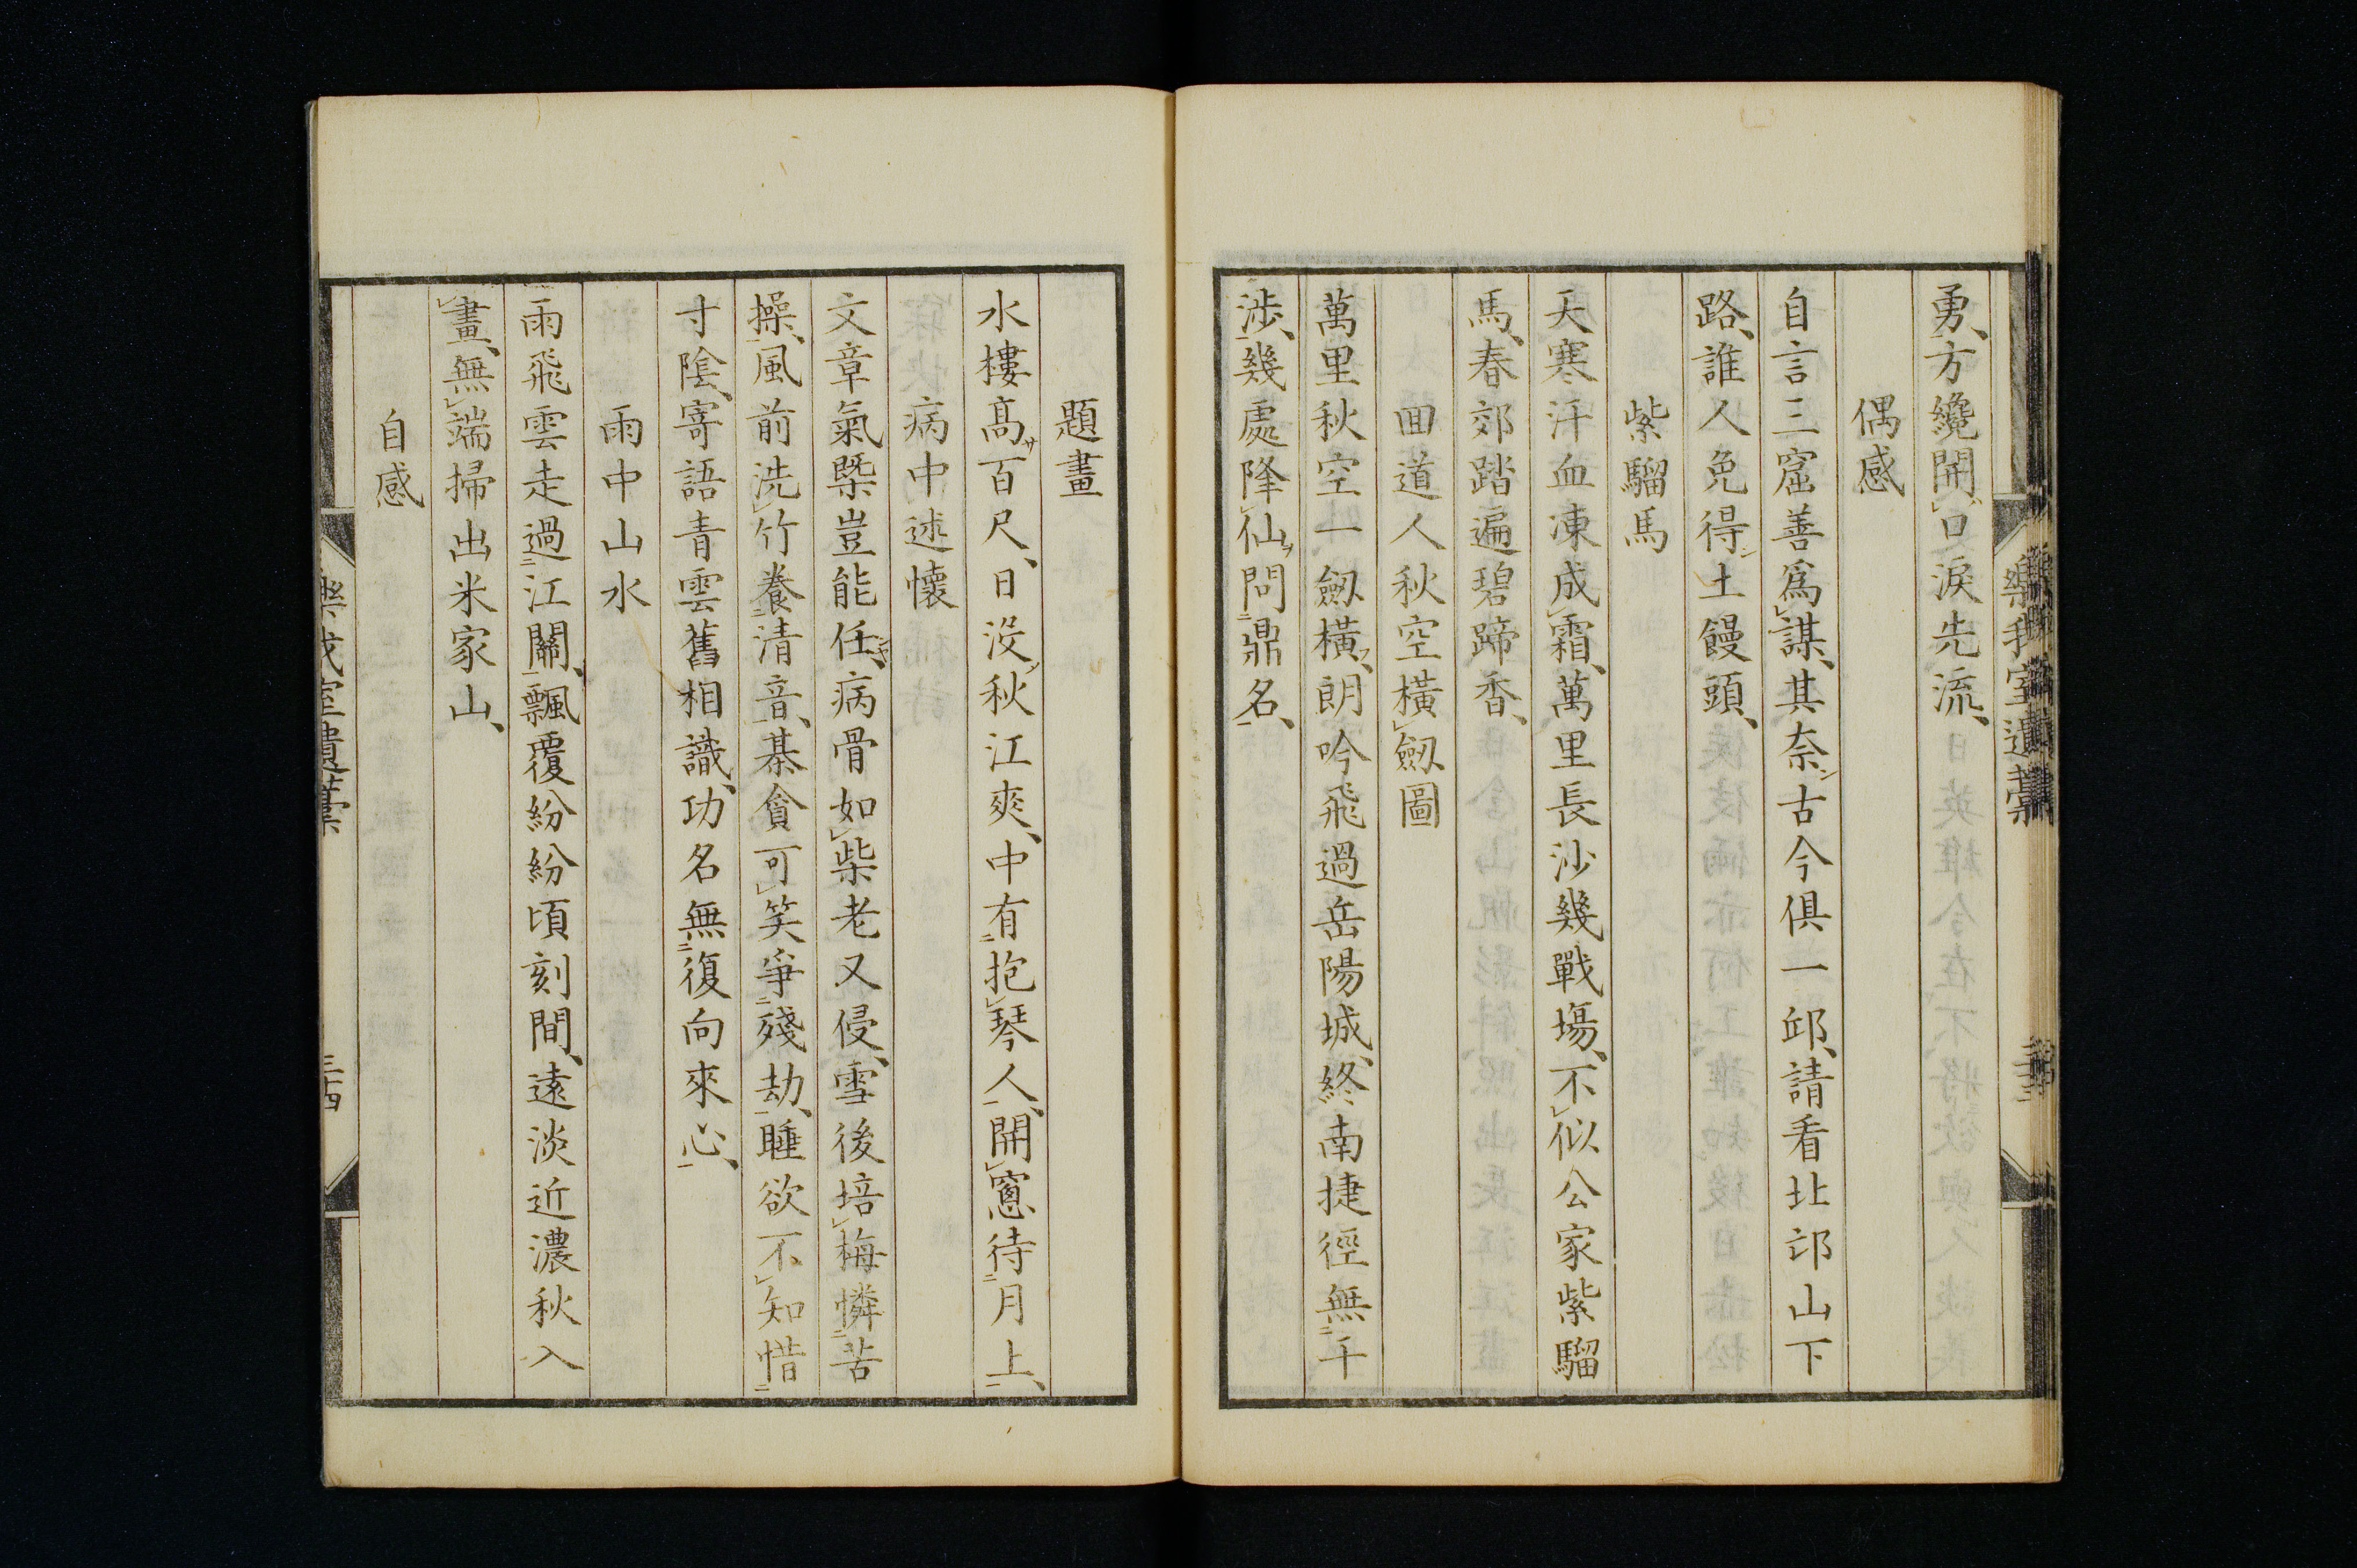 勇、方纔開口淚先流、
偶感
自言三窟善爲謀、其奈古今俱一邱、請看北邙山下
路、誰人免得土饅頭、
紫騮馬
天寒汗血凍成霜、萬里長沙幾戰場、不似公家紫騮
馬、春郊踏遍碧蹄香、
回道人秋空横劔圖
萬里秋空一劔横、朗吟飛過岳陽城、終南捷徑無干
涉、幾處降仙問鼎名、
樂我室遺藁
題畫
水樓髙百尺、日没秋江爽、中有抱琴人、開窓待月上、
病中述懷
文章氣槩豈能任、病骨如柴老又侵、雪後培梅憐苦
操、風前洗竹養清音、棊貪可笑爭殘劫、睡欲不知惜
寸陰、寄語青雲舊相識、功名無復向來心、
雨中山水
雨飛雲走過江關、飄覆紛紛頃刻間、遠淡近濃秋入
畫、無端掃出米家山、
自感
樂我室遺藁
三十四